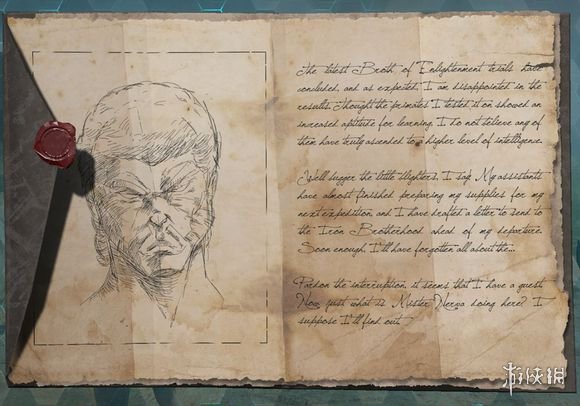 The latest Broth of Enlightenment trials have
concluded, and as expected, I am disappointed in the
results. Thought the primates I tested it on showed an
increased aptitude for learning, I do not believe any of
them have truly ascended to a higher level of intelligence.
Well bugger the little blighters, I say. My assistants
have almost finished preparing my supplies for my
next expedition, and I have drafted a letter to send to
the Iron Brotherhood ahead of my departure.
Soon enough, I'll have forgotten all about the...
Pardon the interruption, it seems that I have a guest.
Now, just what is Mister Nerva doing here? I
suppose I'll find out.
游侠网